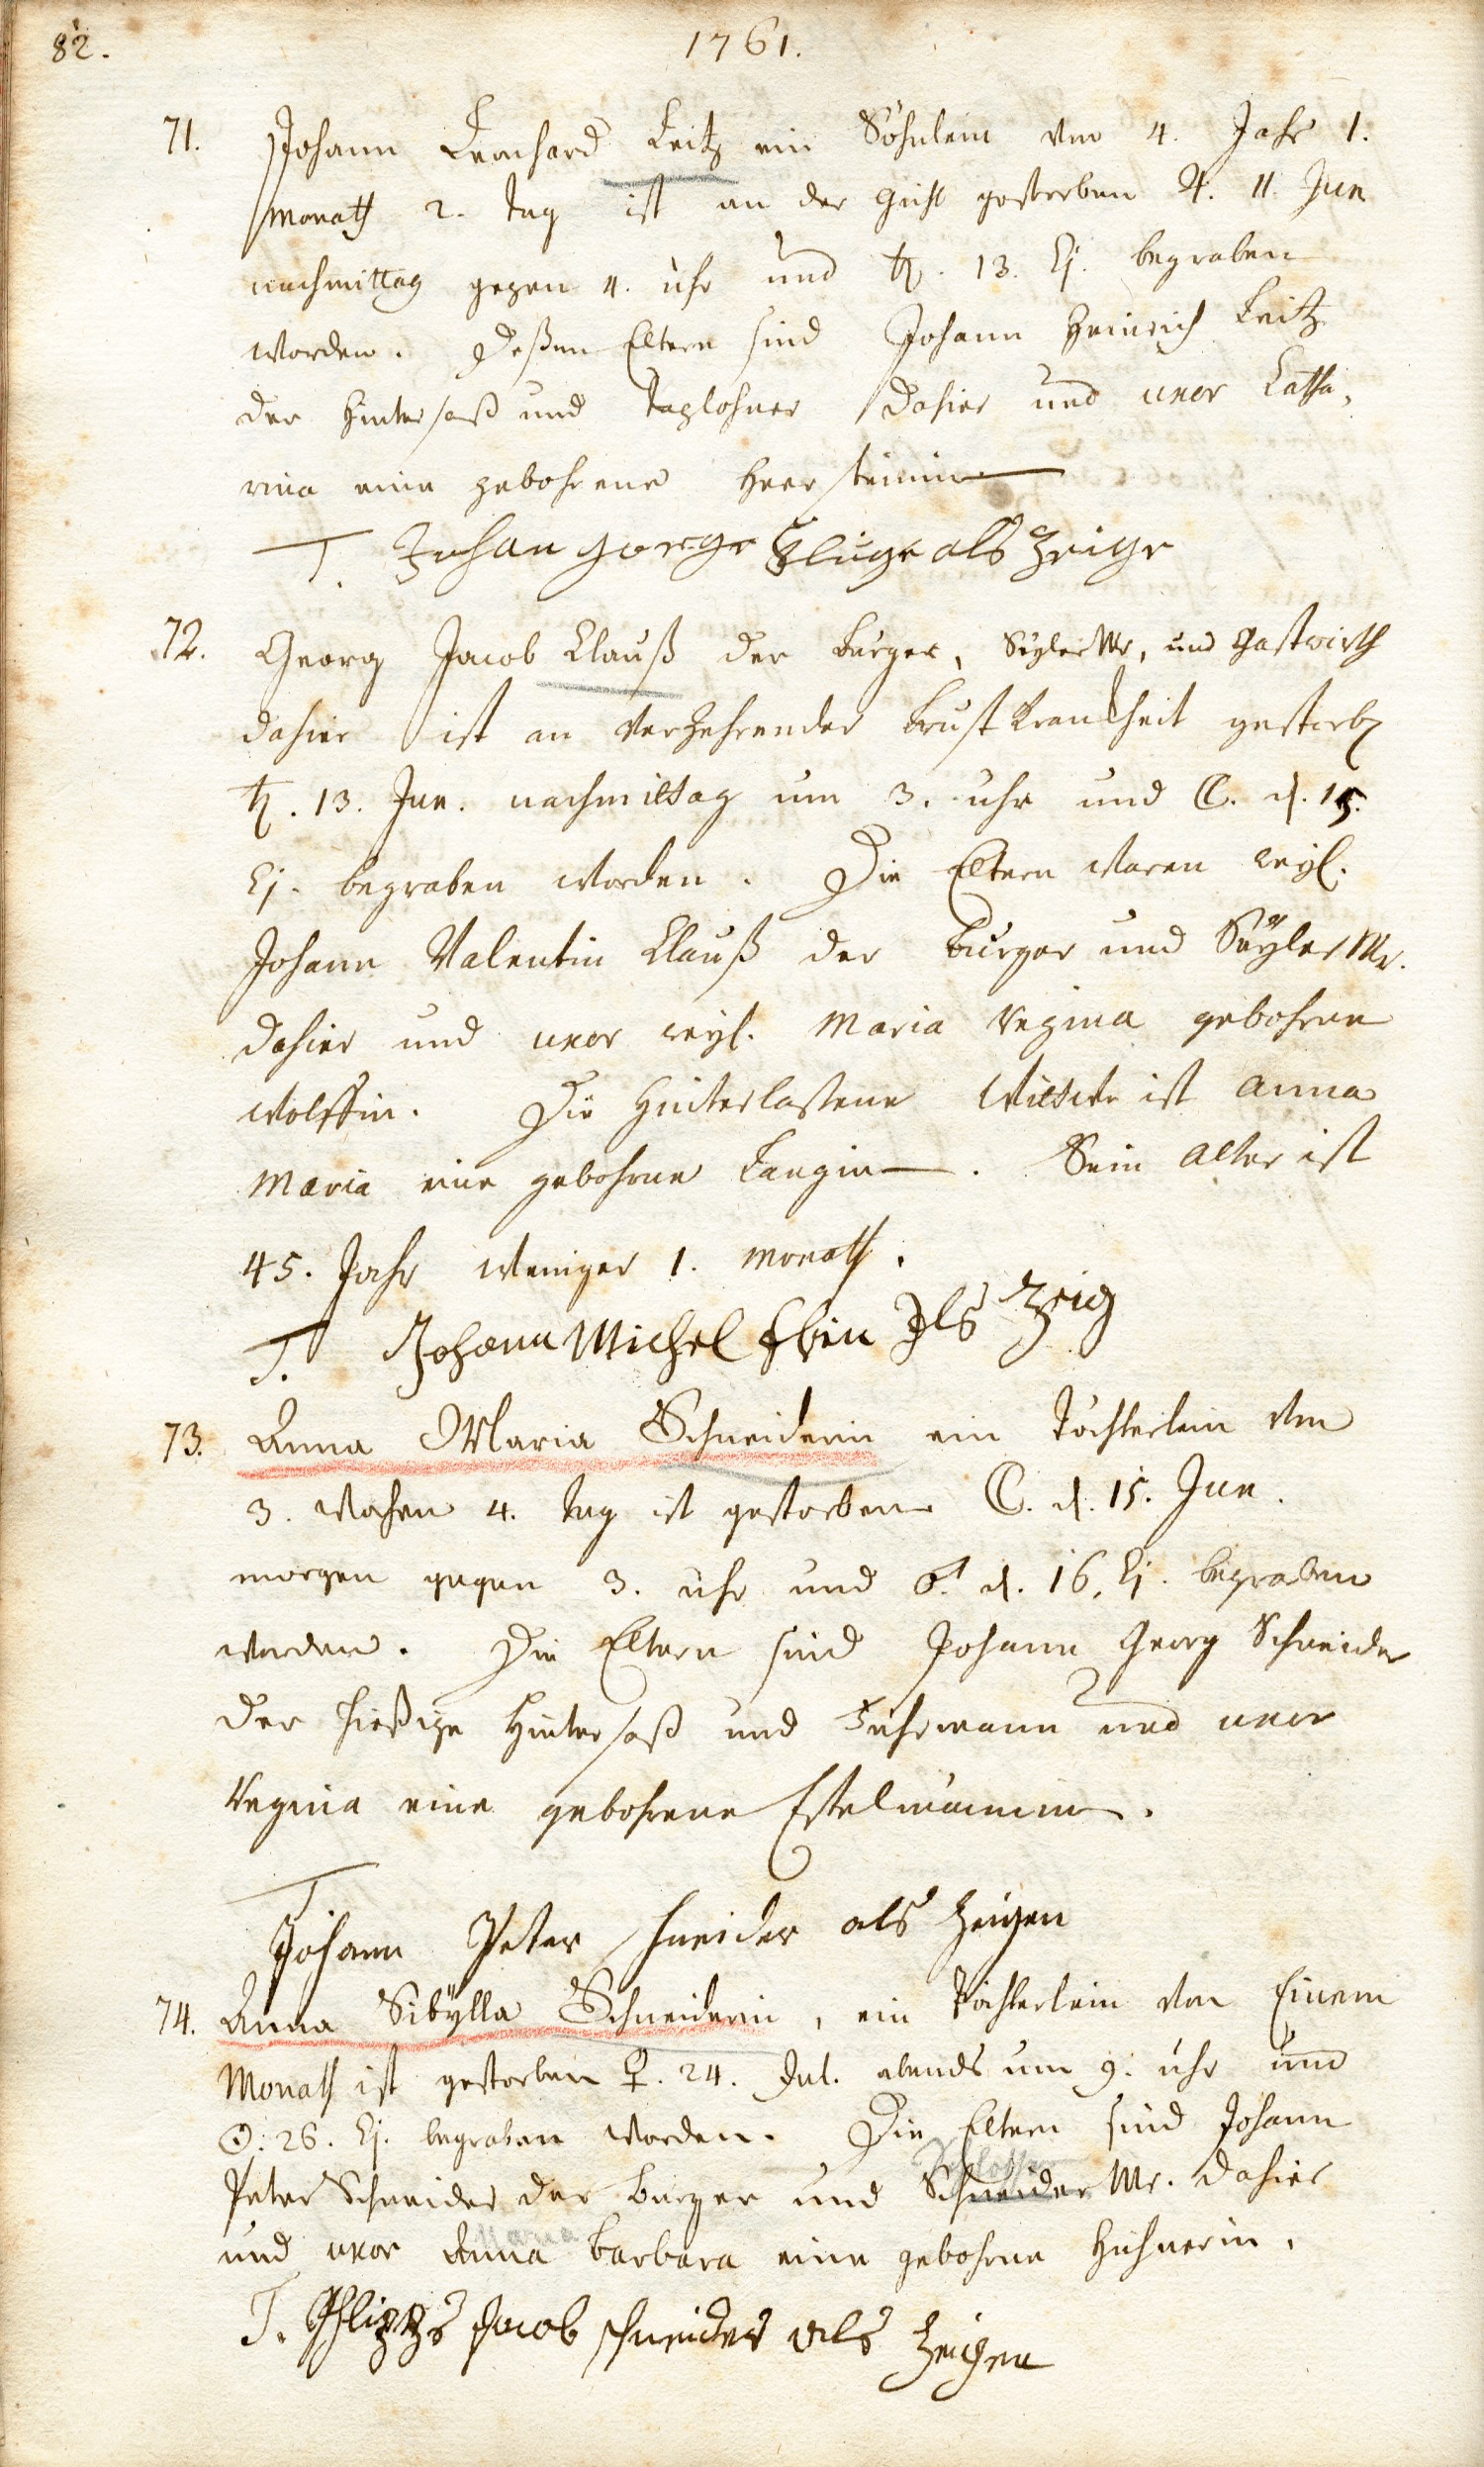 82.
1761.
71. Johann Leonhard Leitz ein Söhnlein von 4. Jahr 1.
Monath 2. tag ist an der Gicht gestorben ♃. 11. Jun
nachmittag gegen 4. uhr und ♄. 13. Ej. begraben
worden. Deßen Eltern sind Johann Heinrich Leitz
der Hintersaß und Taglohner dahier und uxor Catha,
rina eine gebohrene Heersteinin
T. Johan Gorge Kluge als Zeige
72. Georg Jacob Clauß der Burger, Seyler Mr, und Gastwirth
dahier ist an verzehrender Brust Krankheit gestorb
♄. 13. Jun. nachmittag um 3. uhr und ☾. d. 15.
Ej. begraben worden. Die Eltern waren weyl.
Johann Valentin Clauß der Burger und Seyler Mr.
dahier und uxor weyl. Maria Regina gebohrne
Wolffin. Die Hinterlaßene Wittwe ist Anna
Maria eine gebohrne Langin. Sein Alter ist
45. Jahr weniger 1. Monath.
T. Johann Michel Als Zeig
73. Anna Maria Schneiderin ein Töchterlein von
3. Wochen 4. tag ist gestorben ☾. d. 15. Jun.
morgen gegen 3. uhr und ♂. d. 16. Ej. begraben
worden. Die Eltern sind Johann Georg Schneider
der hießige Hintersaß und Fuhrmann und uxor
Regina eine gebohrene Estelmännin.
T
Johann Peter schneider als Zeugen
74. Anna Sibÿlla Schneiderin, ein Töchterlein von Einem
Monath ist gestorben ♀. 24. Jul. abends um 9. uhr und
☉. 26. Ej. begraben worden. Die Eltern sind Johann
Schlosser
Peter Schneider der Burger und Schneider Mr. dahier
Maria
und uxor Anna Barbara eine gebohrne Huhnerin.
T. Jacob schneider als Zeugen